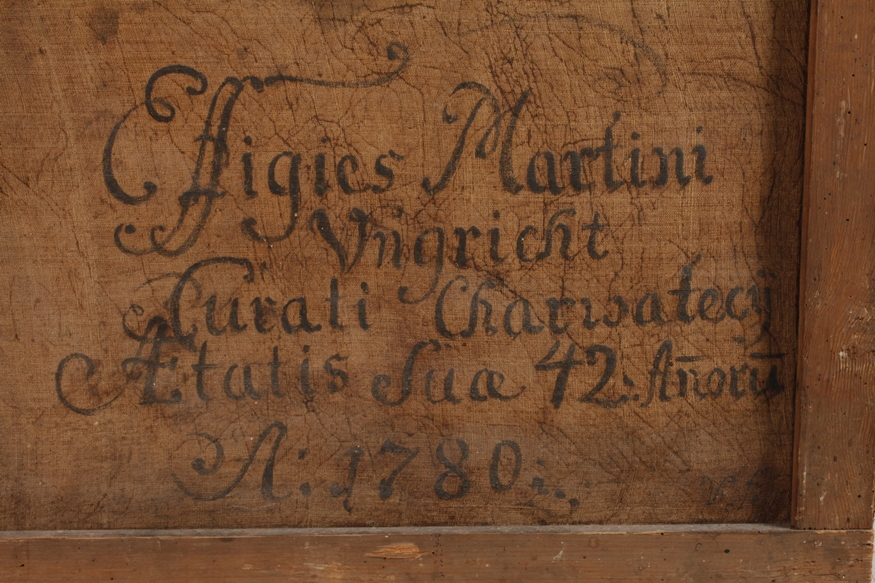 Effigies Martini
Vngricht
Curati Charwatecÿ
Ætatis Suæ 42: Añorū
A: 1780: